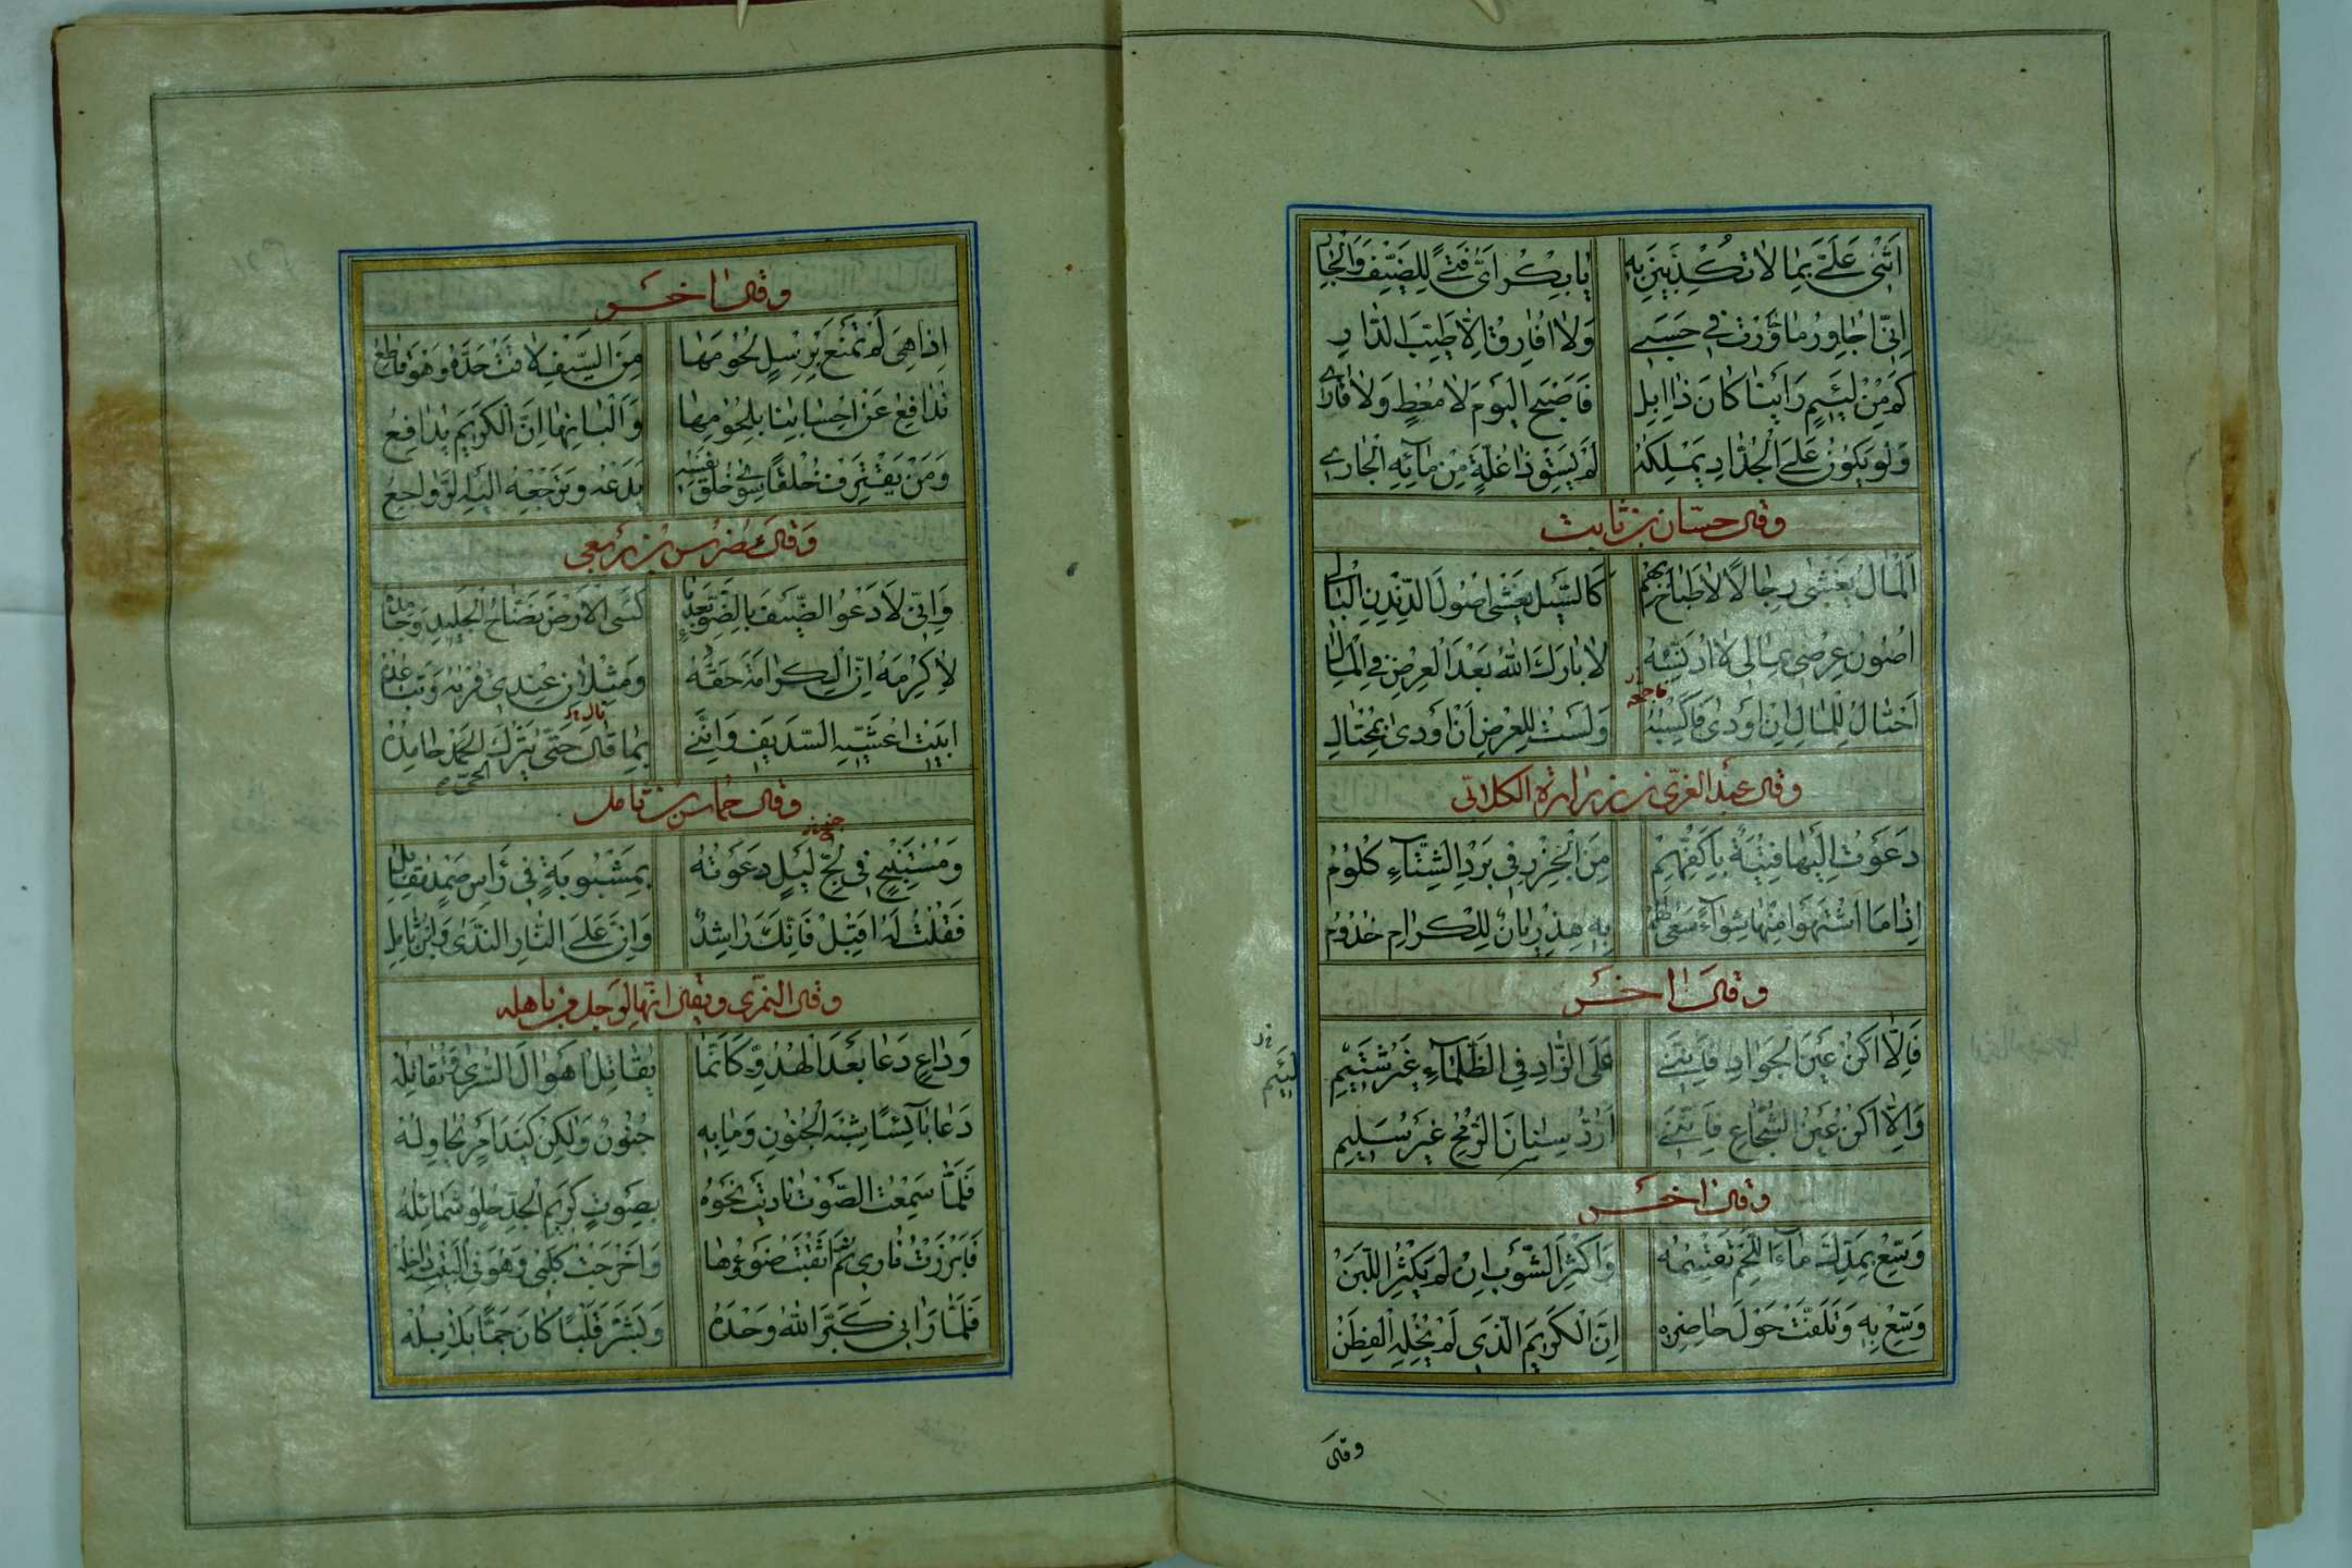 اَثْنِي عَلَيَّ بِمَا لَا تَكْذِبِينَ بِهِ يَا بِكْرُ اَيُّ فَتًى لِلضَّيْفِ وَالْجَارِ
اِنِّي اُجَاوِرُ مَا وُرِّقْتُ فِي حَسَبِي وَلَا اُفَارِقُ اِلَّا طَيِّبَ الدَّارِ
كَمْ مِنْ لَئِيمٍ رَاَيْنَا كَانَ ذَا اِبِلٍ فَاَصْبَحَ الْيَوْمَ لَا مُعْطٍ وَلَا قَارِي
وَلَوْ يَكُونُ عَلَى الْحُدَّادِ يَمْلِكُهُ لَمْ يَسْقِ ذَا غُلَّةٍ مِنْ مَآئِهِ الْجَارِي
وقال حسان بن ثابت
اَلْمَالُ يَغْشَى رِجَالًا لَا طَبَاخَ بِهِمْ كَالسَّيْلِ يَغْشَى اُصُولَ الدِّنْدِنِ الْبَالِي
اَصُونُ عِرْضِي بِمَالِي لَا اُدَنِّسُهُ لَا بَارَكَ اللهُ بَعْدَ الْعِرْضِ فِي الْمَالِ
اَحْتَالُ لِلْمَالِ اِنْ اَوْدَى فَاَكْسِبُهُ وَلَسْتُ لِلْعِرْضِ اَنْ اَوْدَى بِمُحْتَالِ
وقال عبد العزى بن زرارة الكلابي
دَعَوْتُ اِلَيْهَا فِتْيَةً بِاَكُفِّهِمْ مِنَ الْجَزْرِ فِي بَرْدِ الشِّتَآءِ كُلُومُ
اِذَا مَا اشْتَهَوْا مِنْهَا شِوَآءً سَعَى لَهُمْ بِهِ هِذْرِيَانٌ لِلْكِرَامِ خَدُومُ
وقال اخر
فَاِلَّا اَكُنْ عَيْنَ الْجَوَادِ فَاِنَّنِي عَلَى الزَّادِ فِي الظَّلْمَآءِ غَيْرُ شَتِيمِ
لئيم
وَاِلَّا اَكُنْ عَيْنَ الشُّجَاعِ فَاِنَّنِي اَرُدُّ سِنَانَ الرُّمْحِ غَيْرَ سَلِيمِ
وقال اخر
وَسِّعْ بِمَدِّكَ مَآءَ اللَّحْمِ تَقْسِمُهُ وَاَكْثِرِ الشَّوْبَ اِنْ لَمْ يَكْثُرِ اللَّبَنُ
وَسِّعْ بِهِ وَتَلَفَّتْ حَوْلَ حَاضِرِهِ اِنَّ الْكَرِيمَ الَّذِي لَمْ يُخْلِهِ الْفِطَنُ
وقال
وقال اخر
اِذَا هِيَ لَمْ تَمْنَعْ بِرِسْلٍ لُحُومَهَا مِنَ السَّيْفِ لَاقَتْ حَدَّهُ وَهْوَ قَاطِعُ
نُدَافِعُ عَنْ اَحْسَابِنَا بِلُحُومِهَا وَاَلْبَانِهَا اِنَّ الْكَرِيمَ يُدَافِعُ
وَمَنْ يَقْتَرِفْ خُلْقًا سِوَى خُلْقِ نَفْسِهِ يَدَعْهُ وَتَرْجِعْهُ اِلَيْهِ الرَّوَاجِعُ
وَقَالَ مضرس بن ربعي
وَاِنِّي لَاَدْعُو الضَّيْفَ بِالضَّوْءِ بَعْدَمَا كَسَى الْاَرْضَ نَضَّاحُ الْجَلِيدِ وَجَامِدُهُ
لِاُكْرِمَهُ اِنَّ الْكَرَامَةَ حَقُّهُ وَمِثْلَانِ عِنْدِي قُرْبُهُ وَتَبَاعُدُهُ
اَبِيتُ اُعَشِّيهِ السَّدِيفَ وَاِنَّنِي بِمَا قَالَ حَتَّى يَتْرُكَ الْحَمْدَ حَامِدُهُ
نال
الحي
وقال حماس بن ثامل
وَمُسْتَنْبِحٍ فِي لُجِّ لَيْلٍ دَعَوْتُهُ بِمَشْبُوبَةٍ فِي رَاْسِ صَمْدٍ مُقَابِلِ
فَقُلْتُ لَهُ اَقْبِلْ فَاِنَّكَ رَاشِدٌ وَاِنَّ عَلَى النَّارِ النَّدَى وَابْنَ ثَامِلِ
وقال النمري ويقال انها لرجل من باهله
وَدَاعٍ دَعَا بَعْدَ الْهُدُوِّ كَاَنَّمَا يُقَاتِلُ اَهْوَالَ السُّرَى وَتُقَاتِلُهُ
دَعَا بَآئِسًا شِبْهَ الْجُنُونِ وَمَا بِهِ جُنُونٌ وَلَكِنْ كَيْدُ اَمْرٍ يُحَاوِلُهُ
فَلَمَّا سَمِعْتُ الصَّوْتَ نَادَيْتُ نَحْوَهُ بِصَوْتٍ كَرِيمِ الْجَدِّ حُلْوٍ شَمَائِلُهُ
فَاَبْرَزْتُ نَارِي ثُمَّ اَثْقَبْتُ ضَوْءَهَا وَاَخْرَجْتُ كَلْبِي وَهْوَ فِي الْبَيْتِ دَاخِلُهُ
فَلَمَّا رَاٰنِي كَبَّرَ اللهَ وَحْدَهُ وَبَشَّرَ قَلْبًا كَانَ جَمًّا بَلَابِلُهُ